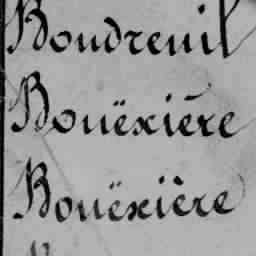 Boudreuil
Bouëxière
Bouëxière